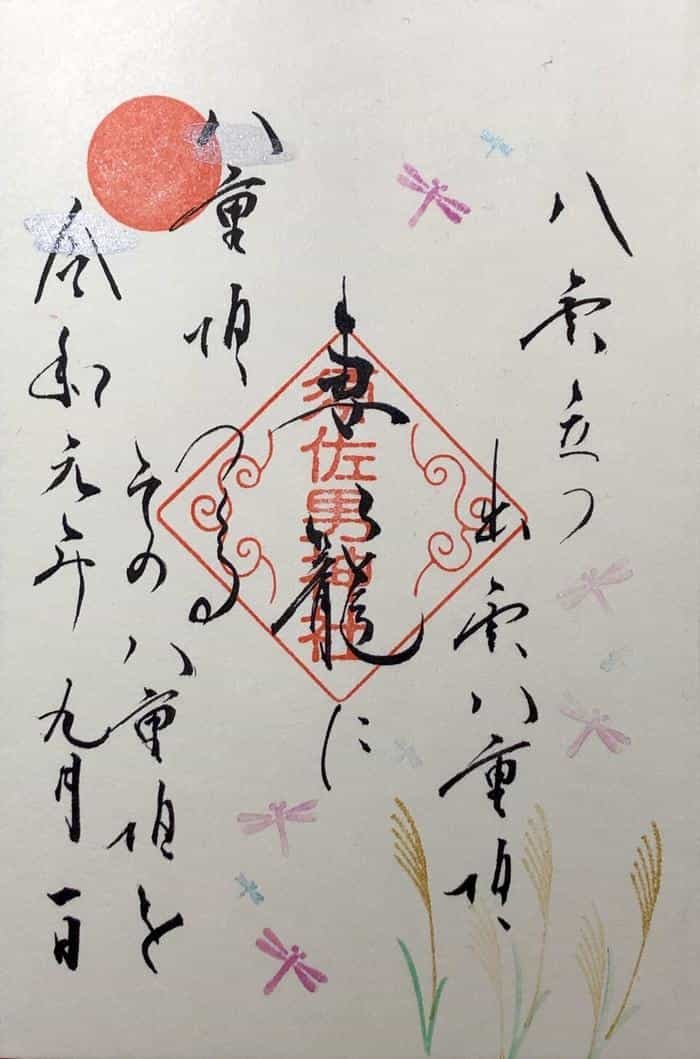 八雲立つ
出雲八重垣
妻籠に
須佐男神社
八重垣つくる
その八重垣を
令和元年九月一日